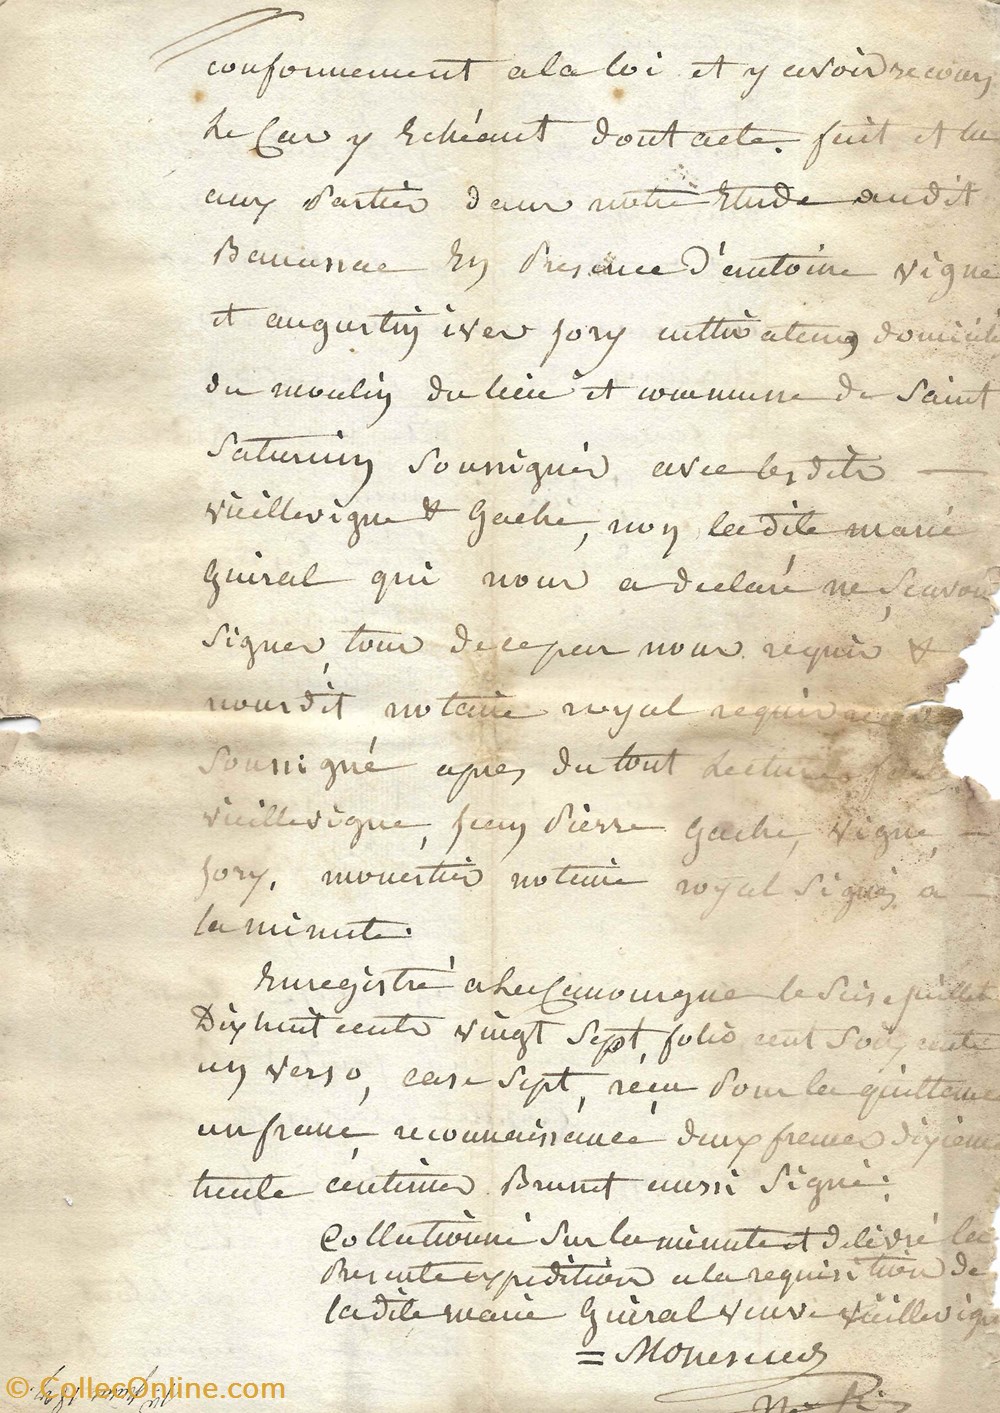 conformement a la loi et y avoir recours
le Cas y Echéant dont acte. fait et lu
aux Parties dans notre Etude audit
Banassac En Presence d'antoine vigne
et augustin iver jory cultivateurs domicilié
du moulin du lieu et commune de Saint
Saturnin Soussignés avec lesdits —
vieillevigne & Gache, non ladite marie
Guiral qui nous a declaré ne Scavoir
Signer, tous de ce par nous requis &
nousdit notaire royal requis
Soussigné apres du tout Lecture
vieillevigne, jean Pierre Gache, vigne, —
jory, monestier notaire royal Signés a —
la minute.
Enregistré a La Canourgue le Seise juillet
Dix huit cents vingt Sept, folio cent Soixante
un verso, case Sept, reçu Pour la quittance
un franc, reconnaissance, deux francs dixieme
trente centimes Brunet aussi Signé.
Collationné Sur la minute et delivré la
Presente expedition a la requisition de
ladite marie Guiral veuve vieillevigne
=
© CollecOnline.com